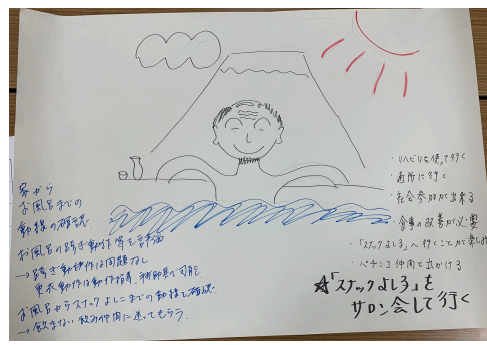 家から
お風呂までの
動線の確認
お風呂の跨ぎ動作等を評価
→跨ぎ動作は問題なし
更衣動作は動作指導、補助具で可能
お風呂からスナックよしこまでの動線を確認
→飲まない飲み仲間に送ってもらう
・リハビリを使って行く
・通所に行く
・社会参加が出来る
・食事の改善が必要
・「スナックよしこ」へ行くことが楽しみ
・パチンコ仲間と出かける
☆「スナックよしこ」を
サロン会して行く